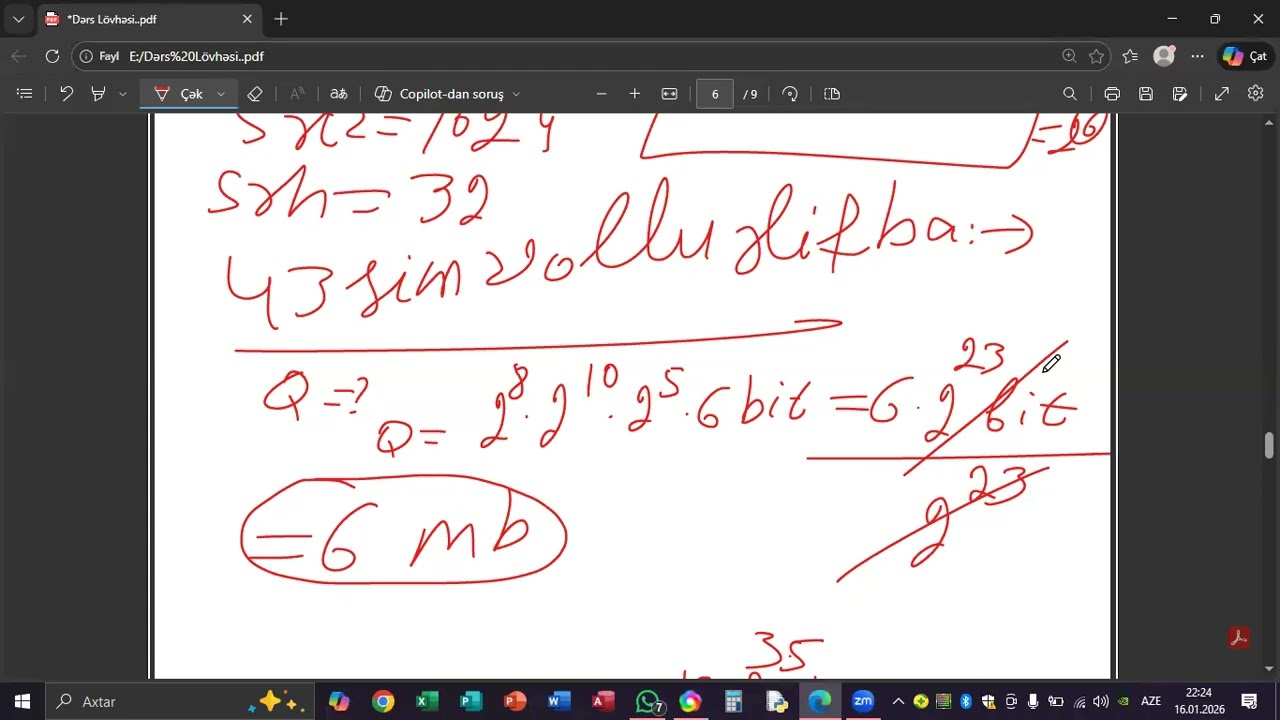 *Dərs Lövhəsi..pdf
Fayl E:/Dərs%20Lövhəsi..pdf
Çat
Çək
aあ
Copilot-dan soruş
6 /9
=1024
=20
Srh=32
43 simvollu əlifba:→
Q=?
Q= 2^8·2^10·2^5·6 bit =6·2^23 bit
2^23
=6 mb
35
Axtar
7
zm
AZE
22:24
16.01.2026